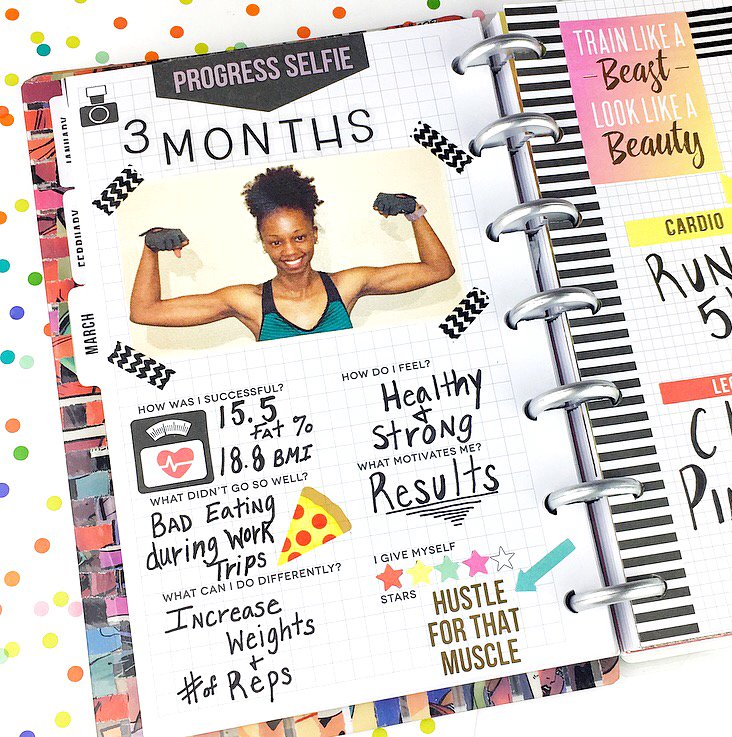 PROGRESS SELFIE
3 MONTHS
JANUARY
FEBRUARY
MARCH
HOW WAS I SUCCESSFUL?
15.5
FAT %
18.8 BMI
WHAT DIDN'T GO SO WELL?
BAD EATING
during WORK
TRIPS
WHAT CAN I DO DIFFERENTLY?
INCREASE
Weights
+
# of REPS
HOW DO I FEEL?
Healthy
+
STRONG
WHAT MOTIVATES ME?
Results
I GIVE MYSELF
STARS
HUSTLE
FOR THAT
MUSCLE
TRAIN LIKE A
Beast
LOOK LIKE A
Beauty
CARDIO
RUN
5